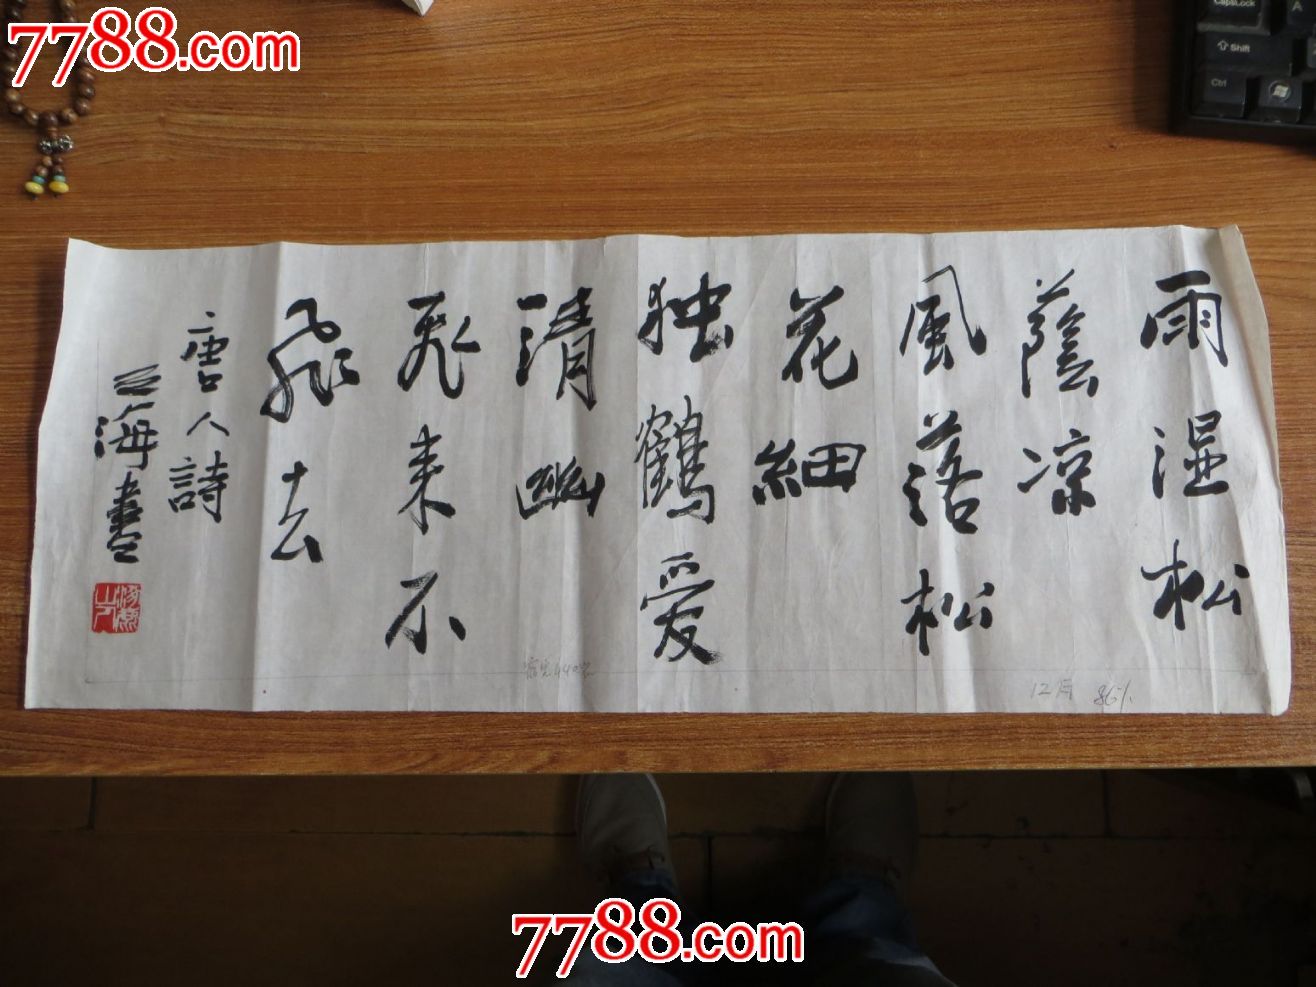 7788.com
CapsLock
A
Shift
Ctrl
雨湿松
蔭凉
風落松
花細
独鶴爱
清幽
飛来不
飛去
唐人詩
海書
12月 86%
7788.com